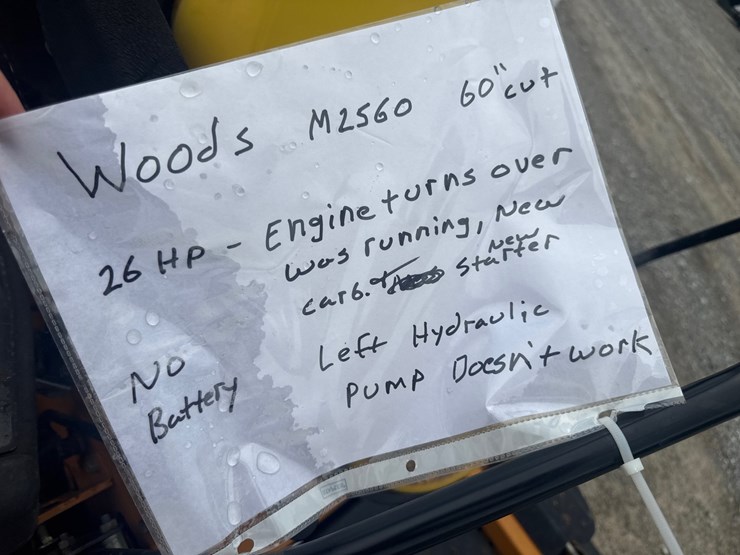 Woods M2560 60" cut
26 HP - Engine turns over
was running, New
carb. + New starter
No
Battery
Left Hydraulic
PUMP Doesn't work